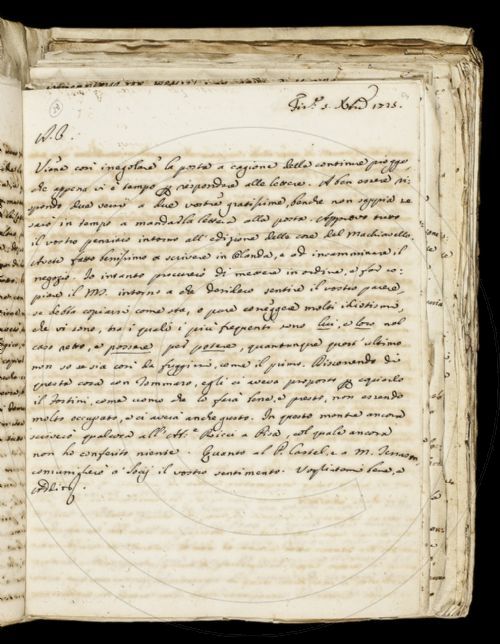 Fir.e 3. Xbre 1725.
A. C.
Viene così irregolare la posta a cagione delle continue piogge
che appena vi è tempo di rispondere alle lettere. A ben essere ri-
spondo due versi a due vostre gratissime, benché non sappia se
sarò in tempo a mandar la lettera alla posta. Approvo tutto
il vostro pensiero intorno all'edizione delle cose del Machiavello.
Avete fatto benissimo a scrivere in Olanda, e ad incamminare il
negozio. Io intanto procurerò di mettere in ordine, o far co-
piare il M. intorno a che desidero sentire il vostro parere,
se debba copiarsi come sta, o pure correggere molti idiotismi,
che vi sono, tra i quali i più frequenti sono lui, e loro nel
caso retto, e possere per potere, quantunque quest'ultimo
non so se sia così da fuggirsi, come il primo. Discorrendo di
questa cosa con Tommaso, egli ci aveva proposto per copiarlo
il Fortini, come uomo che lo farà bene, e presto, non essendo
molto occupato, e ci aveva anche gusto. In questo mentre ancora
scriverò qualcosa all' Ab.e Ricci a Pisa, col quale ancora
non ho conferito niente. Quanto al P. Castel, e a M.
comunicherò a Soci il vostro sentimento. Vogliatemi bene, e
Addio.